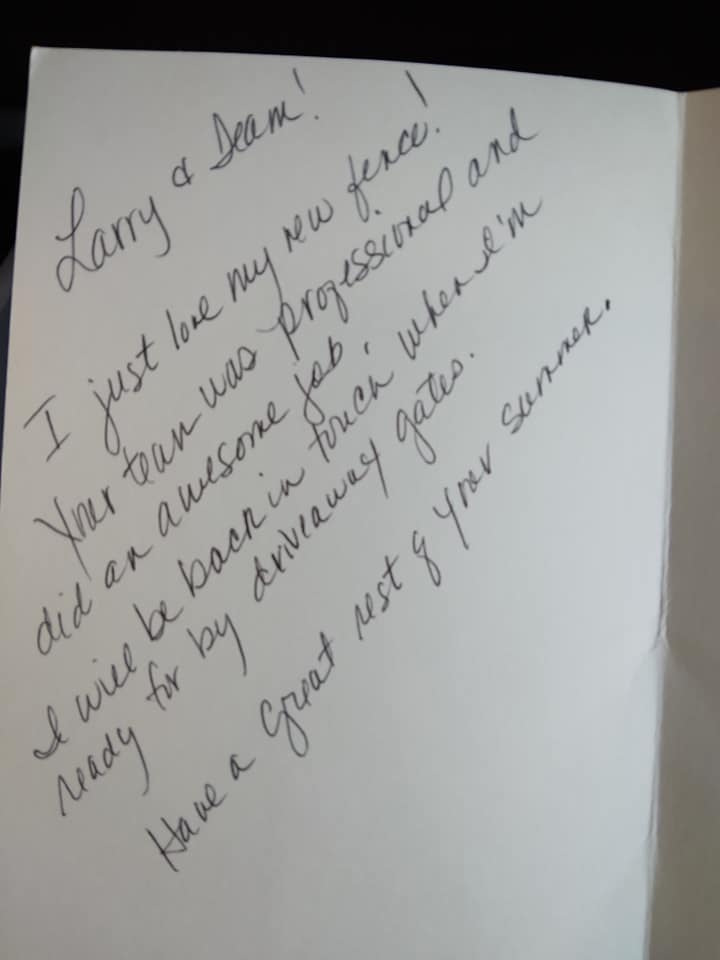 Larry & Team!
I just love my new fence!
Your team was professional and
did an awesome job.
I will be back in touch when I'm
ready for by driveaway gates.
Have a great rest of your summer.